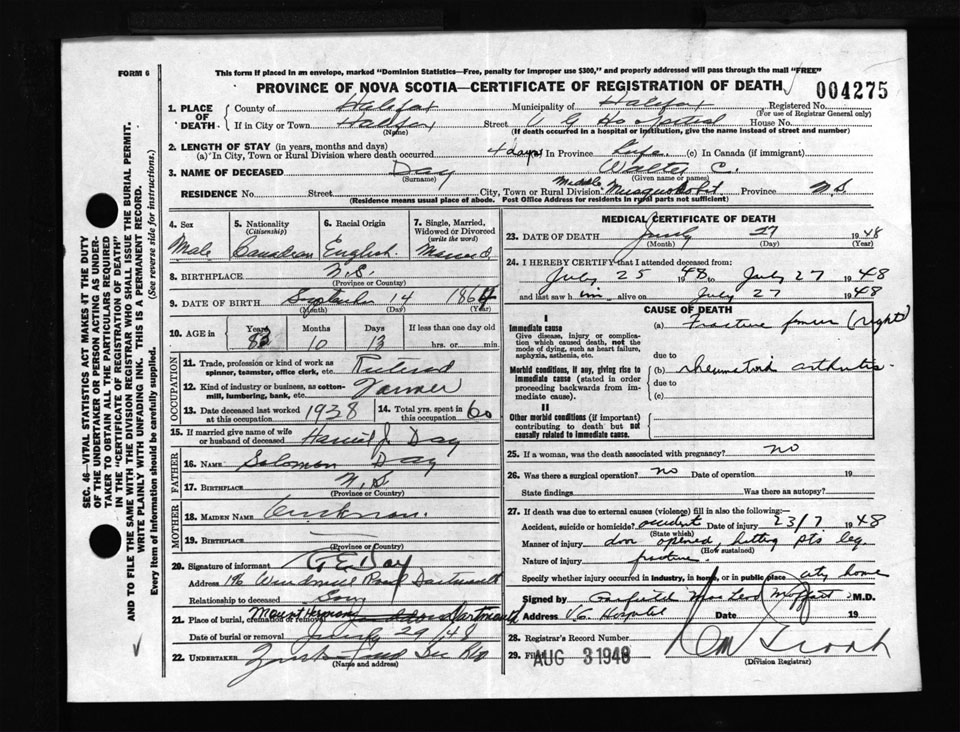 FORM 6
This form if placed in an envelope, marked "Dominion Statistics—Free, penalty for improper use $300," and properly addressed will pass through the mail "FREE"
PROVINCE OF NOVA SCOTIA—CERTIFICATE OF REGISTRATION OF DEATH
004275
1. PLACE OF DEATH
County of Halifax Municipality of Halifax Registered No.
(For use of Registrar General only)
If in City or Town Halifax Street V G Hospital House No.
(Name) (If death occurred in a hospital or institution, give the name instead of street and number)
2. LENGTH OF STAY (in years, months and days)
(a) In City, Town or Rural Division where death occurred 4 days In Province Life (c) In Canada (if immigrant)
3. NAME OF DECEASED Day Walter C.
(Surname) (Given name or names)
RESIDENCE No. Street City, Town or Rural Division Middle Musquodobit Province N.S
(Residence means usual place of abode. Post Office Address for residents in rural parts not sufficient)
4. Sex Male
5. Nationality (Citizenship) Canadian
6. Racial Origin English
7. Single, Married, Widowed or Divorced (write the word) Married
8. BIRTHPLACE N.S.
(Province or Country)
9. DATE OF BIRTH September 14 1864
(Month) (Day) (Year)
10. AGE in Years 83 Months 10 Days 13 If less than one day old hrs. or min.
OCCUPATION
11. Trade, profession or kind of work as spinner, teamster, office clerk, etc. Retired
12. Kind of industry or business, as cotton-mill, lumbering, bank, etc. Farmer
13. Date deceased last worked at this occupation 1938
14. Total yrs. spent in this occupation 60
15. If married give name of wife or husband of deceased J Day
FATHER
16. NAME Solomon Day
17. BIRTHPLACE N,S
(Province or Country)
MOTHER
18. MAIDEN NAME
19. BIRTHPLACE —
(Province or Country)
20. Signature of informant G.E. Day
Address 196 Windmill Road Dartmouth
Relationship to deceased Son
21. Place of burial, cremation or removal Mount Hermon Dartmouth
Date of burial or removal July 29/48
22. UNDERTAKER
(Name and address)
MEDICAL CERTIFICATE OF DEATH
23. DATE OF DEATH July 27 1948
(Month) (Day) (Year)
24. I HEREBY CERTIFY that I attended deceased from:
July 25 1948 to July 27 1948
and last saw h im alive on July 27 1948
CAUSE OF DEATH
I
Immediate cause
Give disease, injury or complication which caused death, not the mode of dying, such as heart failure, asphyxia, asthenia, etc.
(a) Fracture femur (right)
due to
Morbid conditions, if any, giving rise to immediate cause (stated in order proceeding backwards from immediate cause).
(b) rheumatoid arthritis
due to
(c)
II
Other morbid conditions (if important) contributing to death but not causally related to immediate cause.
25. If a woman, was the death associated with pregnancy? no
26. Was there a surgical operation? no Date of operation 19
State findings Was there an autopsy?
27. If death was due to external causes (violence) fill in also the following:
Accident, suicide or homicide? accident Date of injury 23/7 1948
(State which)
Manner of injury door opened, hitting pts leg
(How sustained)
Nature of injury fracture
Specify whether injury occurred in industry, in home, or in public place city home
Signed by Garfield MacLeod Moffatt M.D.
Address V G. Hospital Date 19
28. Registrar's Record Number
29. Filed AUG 3 1948
(Division Registrar)
SEC. 46—VITAL STATISTICS ACT MAKES IT THE DUTY
OF THE UNDERTAKER OR PERSON ACTING AS UNDER-
TAKER TO OBTAIN ALL THE PARTICULARS REQUIRED
IN THE "CERTIFICATE OF REGISTRATION OF DEATH"
AND TO FILE THE SAME WITH THE DIVISION REGISTRAR WHO SHALL ISSUE THE BURIAL PERMIT.
WRITE PLAINLY WITH UNFADING INK. THIS IS A PERMANENT RECORD.
Every item of information should be carefully supplied. (See reverse side for instructions.)